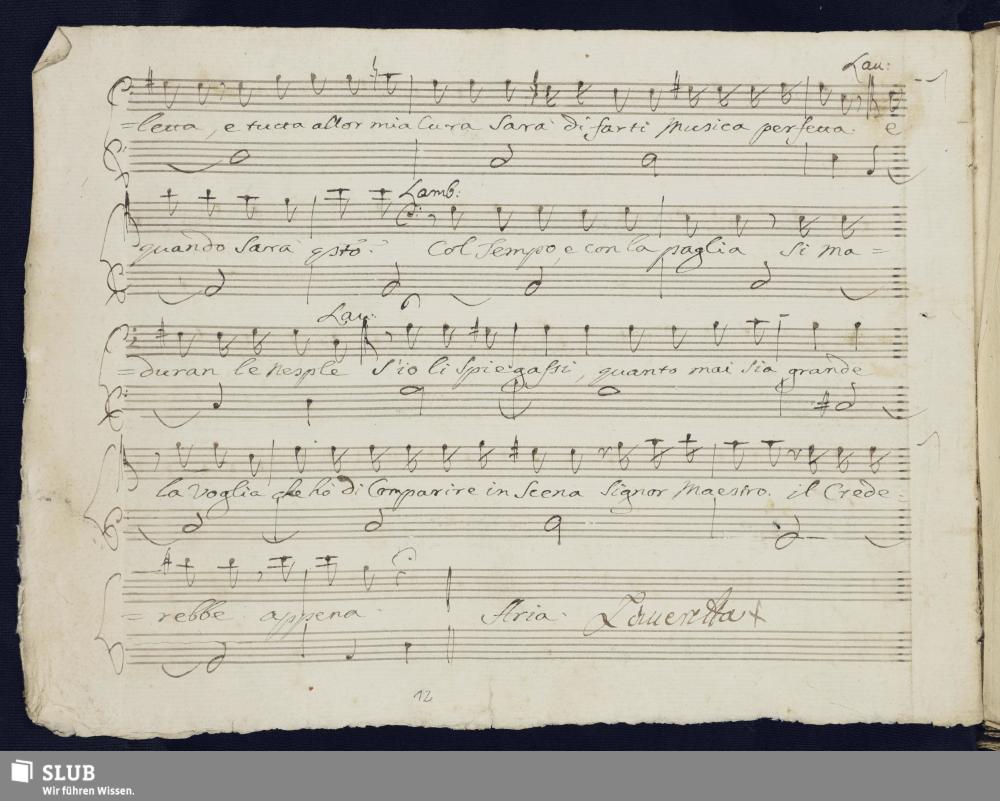 Lau:
=letta, e tutta allor mia Cura Sarà di farti Musica perfetta. e
Lamb:
quando Sarà qsto? Col Tempo, e con la paglia Si ma=
Lau:
=duran le Nesple S'io li Spiegassi, quanto mai Sia grande
la Voglia che hò di Comparire in Scena Signor Maestro. il Crede=
=rebbe appena. Aria. Lauretta
12
SLUB
Wir führen Wissen.